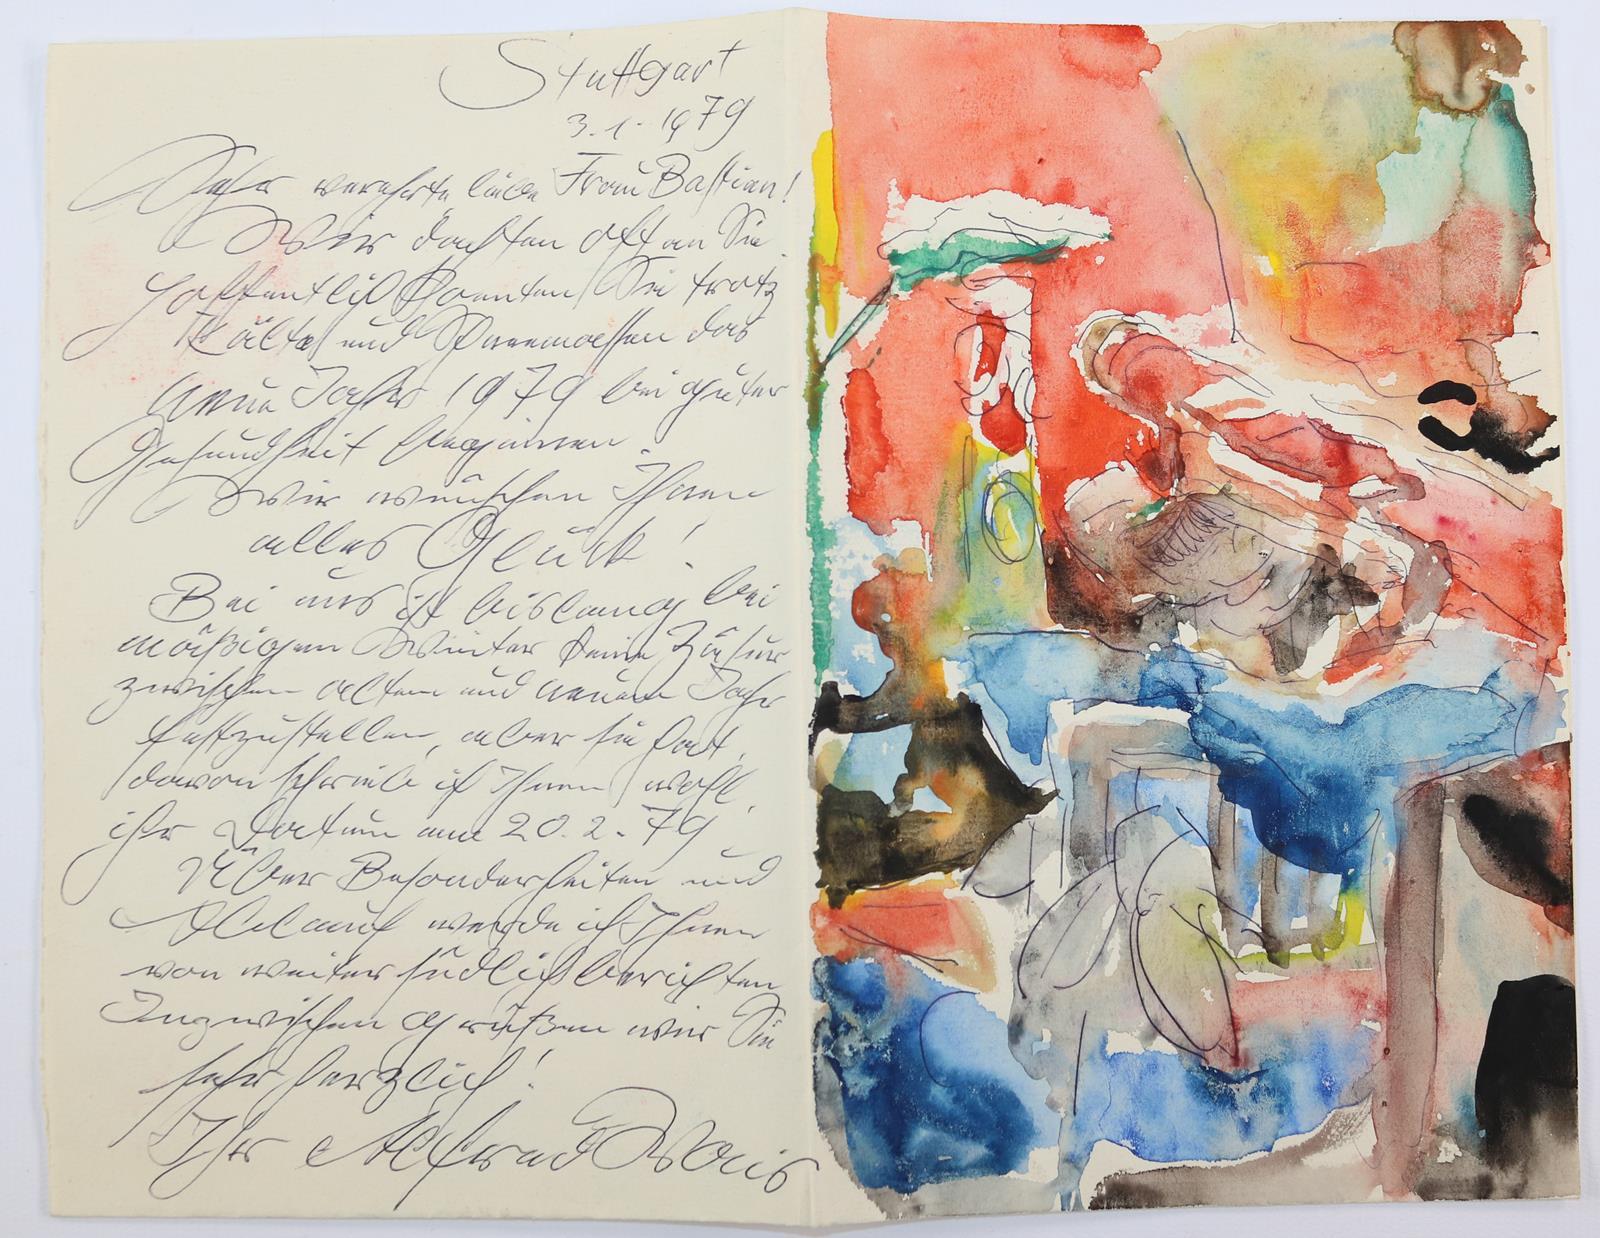 Stuttgart
3.1.1979
Sehr verehrte liebe Frau Bastian!
Wir dachten oft an Sie
hoffentlich konnten Sie trotz
Kälte und Schneemassen das
neue Jahr 1979 bei guter
Gesundheit beginnen.
Wir wünschen Ihnen
alles Glück!
Bei uns ist bislang bei
mäßigem Winter keine Zäsur
zwischen altem und neuem Jahr
festzustellen, aber sie hat,
davon schrieb ich Ihnen wohl,
ihr Datum am 20.2.79
Über Besonderheiten und
Ablauf werde ich Ihnen
von weiter südlich berichten
Inzwischen grüßen wir Sie
sehr herzlich!
Ihr Alfred